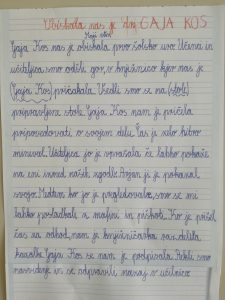 Obiskala nas je dr. GAJA KOS
Moji stol
Gaja Kos nas je obiskala prvo šolsko uro. Učenci in
učiteljica smo odšli gor, v knjižnico kjer nas je
Gaja Kos pričakala. Usedli smo se na stole
pripravljene stole. Gaja Kos nam je pričela
pripovedovati o svojem delu. Čas je zelo hitro
mineval. Učiteljica jo je vprašala če lahko pokaže
na eni izmed naših zgodb. In je pokazal
svojo. Medtem ko jo je pregledovala, smo se mi
lahko posladkali z mafini in piškoti. Ko je prišel
čas za odhod, nam je knjižničarka razdelila
kazalke. Gaja Kos se nam je podpisala. Rekli smo
nasvidenje in se odpravili nazaj v učilnico